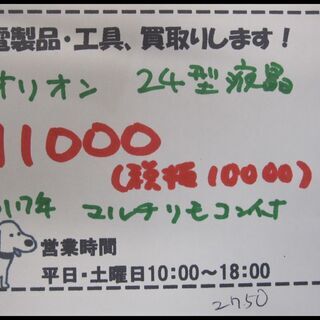 電製品・工具、買取りします！
オリオン 24型液晶
11000
(税抜10000)
017年 マルチリモコン付
営業時間
平日・土曜日10:00～18:00
2750